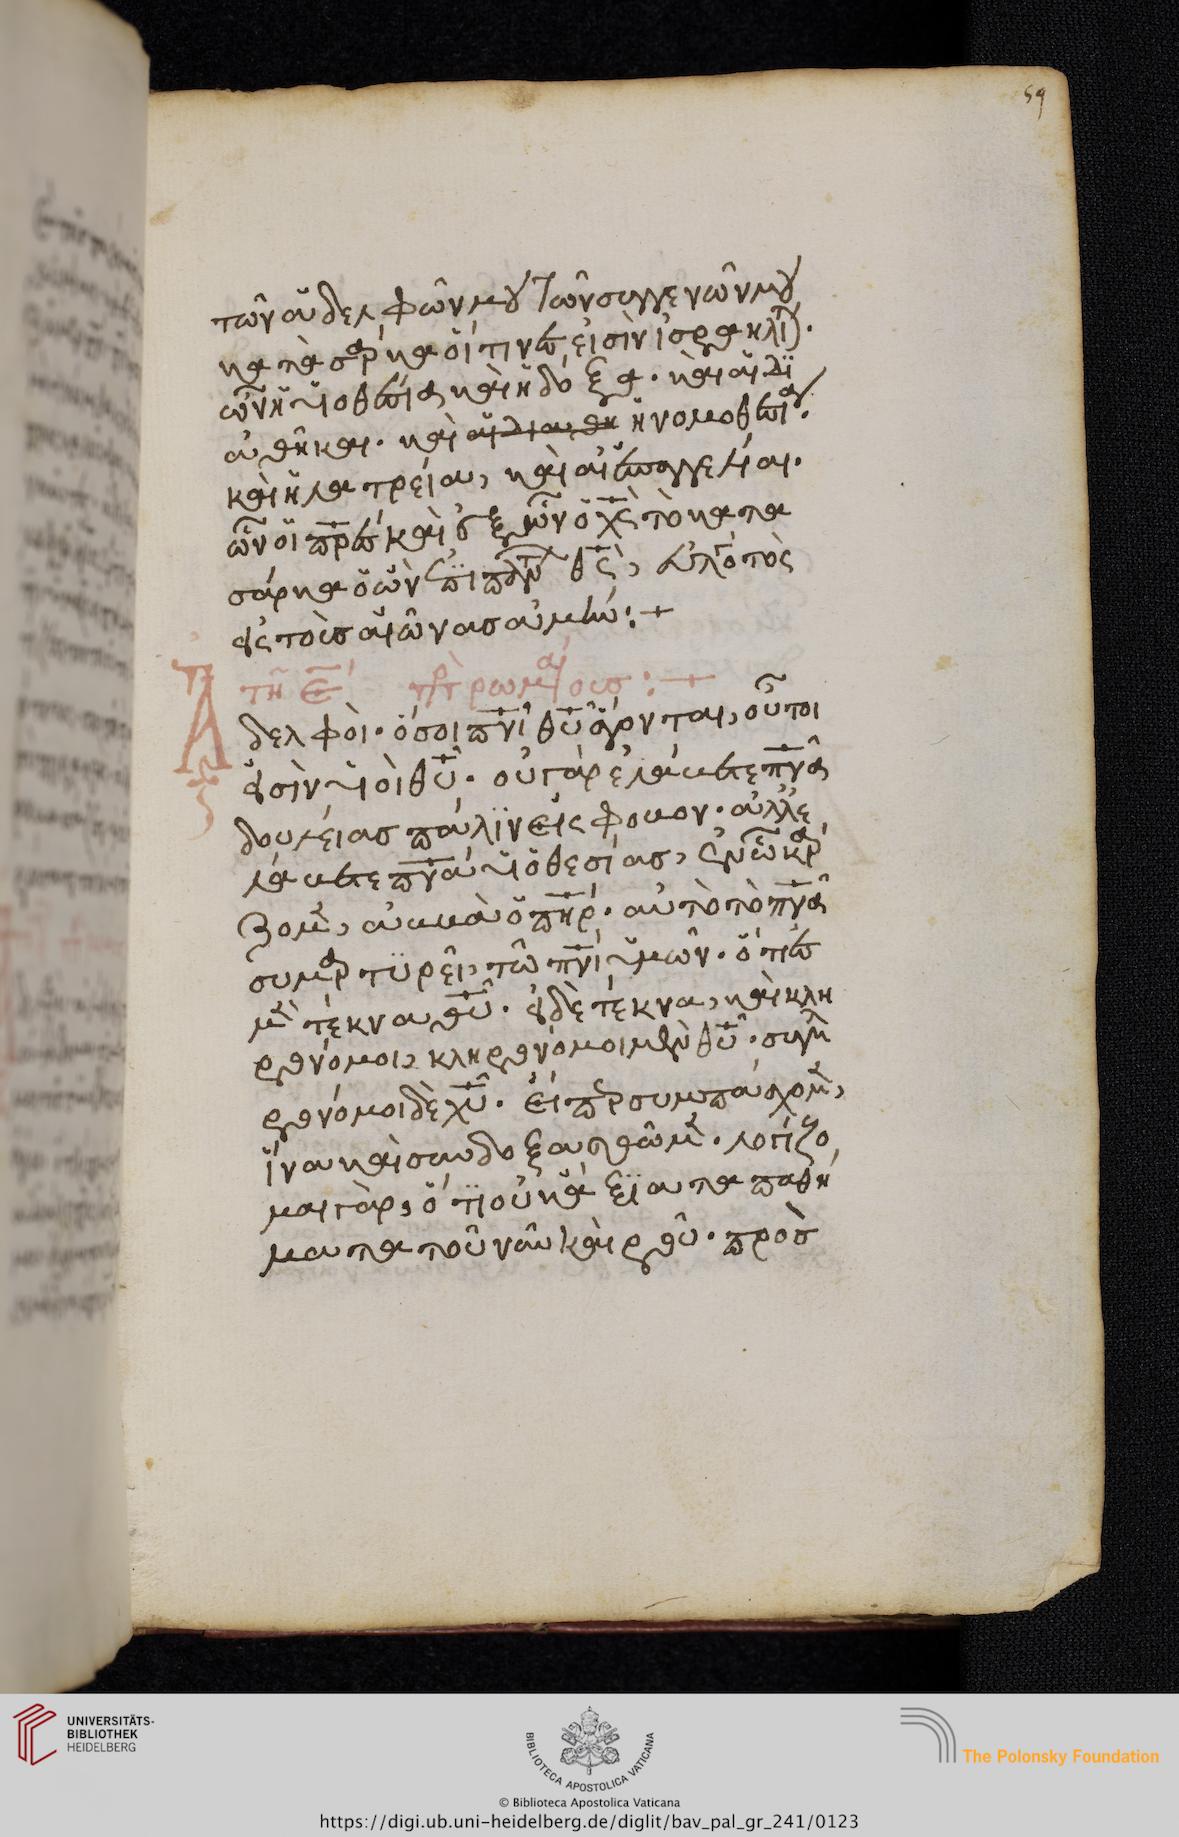 59
τῶν ἀδελφῶν μου τῶν συγγενῶν μου
κατὰ σάρκα οἵτινες εἰσὶν ἰσραηλῖται.
ὧν ἡ υἱοθεσία καὶ ἡ δόξα. καὶ αἱ δι
αθῆκαι. καὶ αἱ διαθη ἡ νομοθεσία.
καὶ ἡ λατρεία, καὶ αἱ ἐπαγγελίαι.
ὧν οἱ πρες καὶ ἐξ ὧν ὁ χς τὸ κατα
σάρκα ὁ ὢν ἐπὶ πάντων θς, εὐλογητὸς
εἰς τοὺς αἰῶνας ἀμήν:+
τῆ ε πρὸς ρωμαίους:+
Αδελφοὶ. ὅσοι πνι θυ ἄγονται, οὗτοι
εἰσὶν υἱοὶ θυ. οὐ γὰρ ἐλάβετε πνα
δουλείας πάλιν εἰς φόβον. ἀλλ' ἐ
λάβετε πνα υἱοθεσίας, ἐν ὧ κρά
ζομεν, ἀββὰ ὁ πηρ. αὐτὸ τὸ πνα
συμμαρτυρεῖ, τῶ πνι ἡμῶν. ὅτι ἐσ
μὲν τέκνα θυ. εἰ δὲ τέκνα, καὶ κλη
ρονόμοι, κληρονόμοι μὲν θυ. συγκλη
ρονόμοι δὲ χυ. εἴπερ συμπάσχομεν,
ἵνα καὶ συνδοξασθῶμεν. λογίζο
μαι γὰρ, ὅτι οὐκ ἄξια τὰ παθή
ματα τοῦ νῦν καιροῦ. πρὸς
UNIVERSITÄTS-
BIBLIOTHEK
HEIDELBERG
BIBLIOTECA APOSTOLICA VATICANA
The Polonsky Foundation
© Biblioteca Apostolica Vaticana
https://digi.ub.uni-heidelberg.de/diglit/bav_pal_gr_241/0123